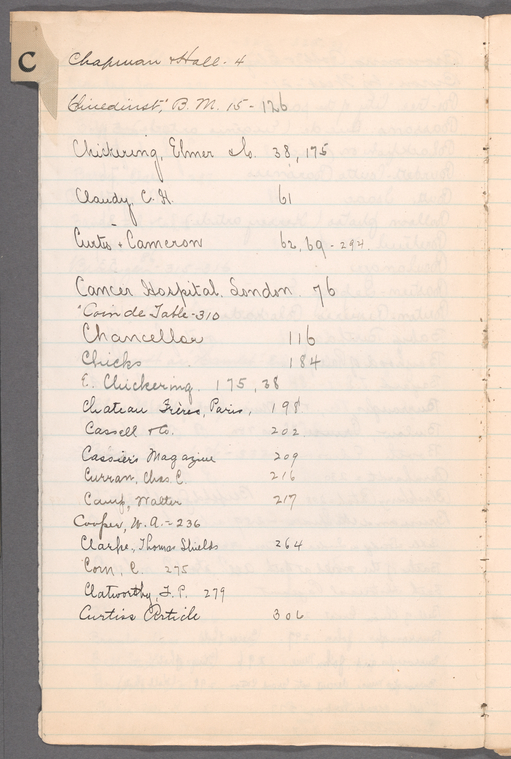 C
Chapman & Hall. 4
Clinedinst, B. M. 15-126
Chickering, Elmer & Co. 38, 175
Claudy, C. H. 61
Curtis & Cameron 62, 69 - 294
Cancer Hospital, London. 76
"Coin de Table - 310
Chancellor 116
Chicks 184
E. Chickering. 175, 38
Chateau Frères, Paris, 198
Cassell & Co. 202
Cassier's Magazine 209
Curran, Chas. C. 216
Camp, Walter 217
Cooper, W. A. - 236
Clarke, Thomas Shields 264
Corn, C. 275
Clatworthy, F. P. 279
Curtiss Article 306